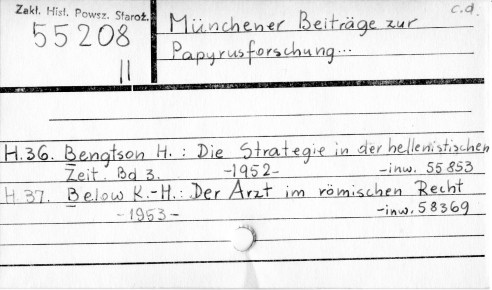 Zakł. Hist. Powsz. Staroż.
55208
11
Münchener Beiträge zur
Papyrusforschung...
c.d.
H.36. Bengtson H.: Die Strategie in der hellenistischen
Zeit. Bd 3. -1952- -inw. 55853
H.37. Below K.-H.: Der Arzt im römischen Recht
-1953- -inw. 58369